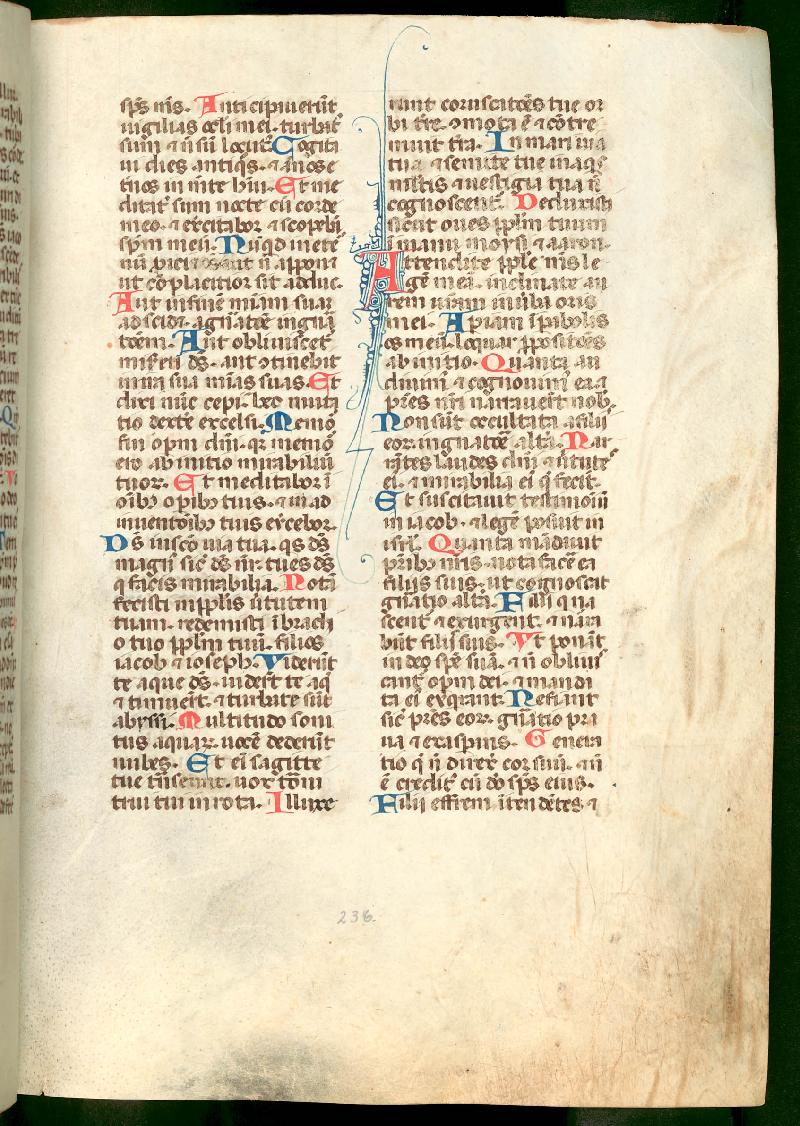 sps̄ ms̄. Anticipauer̄ut
uigilias oc̄li mei. turbat᷒
sum ⁊ nō sū locut᷒. Cogita
ui dies antiq̄s. ⁊ ānos e
tn̄os in mēte hūi. Et me
ditat᷒ sum nocte cū corde
meo. ⁊ excitabor ⁊ scopebā
sp̄m meū. Nūq̇d ī etē
nū ꝓiciet ds̄ aut nō appōnꝫ
ut cōplacitior sit adhuc.
Aut in finē mīam suā
abscidꝫ. a gn̄atōe in gn̄a
tōem. Aut obliuiscet᷒
misereri ds̄. aut ɔtinebit
in ira sua mīas suas. Et
dixi nūc cepi. hec muta
tio dextē excelsi. Memoꝛ
fui opm̄ dn̄i. qꝛ memoꝛ
ero ab initio mirabiliū
tuoꝝ. Et meditaboꝛ ī
oībꝫ opibꝫ tuis. ⁊ in ad
inuentōibꝫ tuis exerceboꝛ.
Ds̄ in sc̄o uia tua. qs ds̄
magn᷒ sic̄ ds̄ nr̄. tu es ds̄
q̇ facis mirabilia. Notā
fecisti in pplis ūtutem
tuam. redemisti ī brachi
o tuo pplm tuū. filios
iacob ⁊ ioseph. Viderūt
te aque ds̄. uiderūt te aq̄
⁊ timuerūt. ⁊ turbate sūt
abyssi. Multitudo soni
tus aquaꝝ. uocē dederūt
nubes. Et eī sagitte
tue tn̄seunt. uox tōni
trui tui in rota. Illuxe
runt coruscatōes tue oꝛ
bi tr̄e. ɔmota ē ⁊ cōtre
muit tr̄a. In mari uia
tua ⁊ semite tue in aq̇s
m̄ltis ⁊ uestigia tua nō
cognoscent᷒. Deduxisti
sicut oues pplm tuum
ī manu moysi ⁊ aaron.
Attendite pple ms̄ le
gē meā. inclinate au
rem ur̄am in uba oris
mei. Apiam ī pabolis
os meū. loquaꝛ ꝓpositōes
ab initio. Quanta au
diuim᷒ ⁊ cognouim᷒ ea. ⁊
pr̄es nr̄i narrauerūt nob̄.
Non sūt occultata a filiis
eoꝝ. in gn̄atōe altā. Nar
rātes laudes dn̄i ⁊ ūtutes
ei᷒. ⁊ mirabilia ei᷒ q̄ fecit.
Et suscitauit testimoniū
in iacob. ⁊ legē posuit in
isrl̄. Quanta mādauit
prībꝫ nr̄is. nota facē ea
filiis suis. ut cognoscat
gn̄atio altā. Filii qui na
scent᷒ ⁊ exurgent. ⁊ narra
būt filiis suis. Vt ponāt
in deo spē suā. ⁊ nō obliuis
cant᷒ opm̄ dei. ⁊ mandā
ta ei᷒ exq̇rant. Ne fiant
sic̄ pr̄es eoꝝ. gn̄atio pra
ua ⁊ exaspans. Genera
tio q̄ nō direxit coꝛ suū. ⁊ nō
ē credit᷒ cū dō sps̄ eius.
Filii effrem ītendētes ⁊
236.